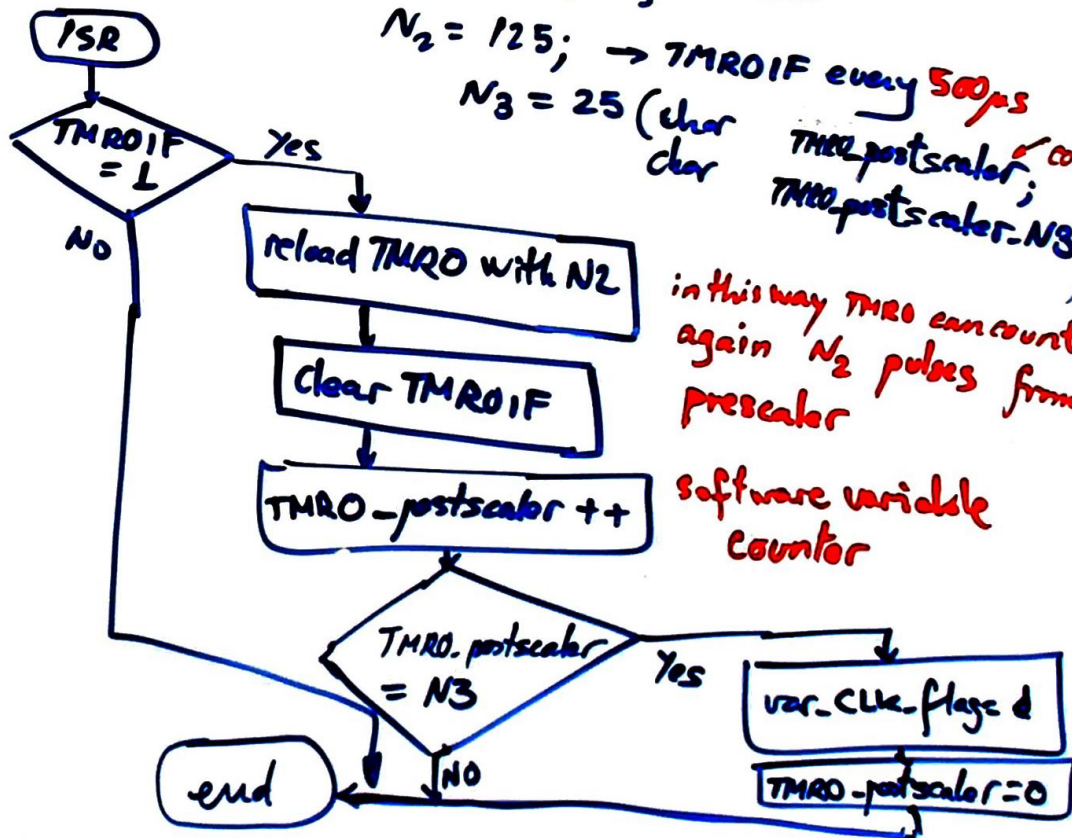 ISR
N2 = 125; → TMR0IF every 500µs
N3 = 25 (char TMR0_postscaler;
char TMR0_postscaler_N3
TMR0IF
= 1
Yes
No
reload TMR0 with N2
in this way TMR0 can count
again N2 pulses from
prescaler
Clear TMR0IF
TMR0_postscaler ++
software variable
counter
TMR0_postscaler
= N3
Yes
NO
var_CLK_flag=
TMR0_postscaler=0
end